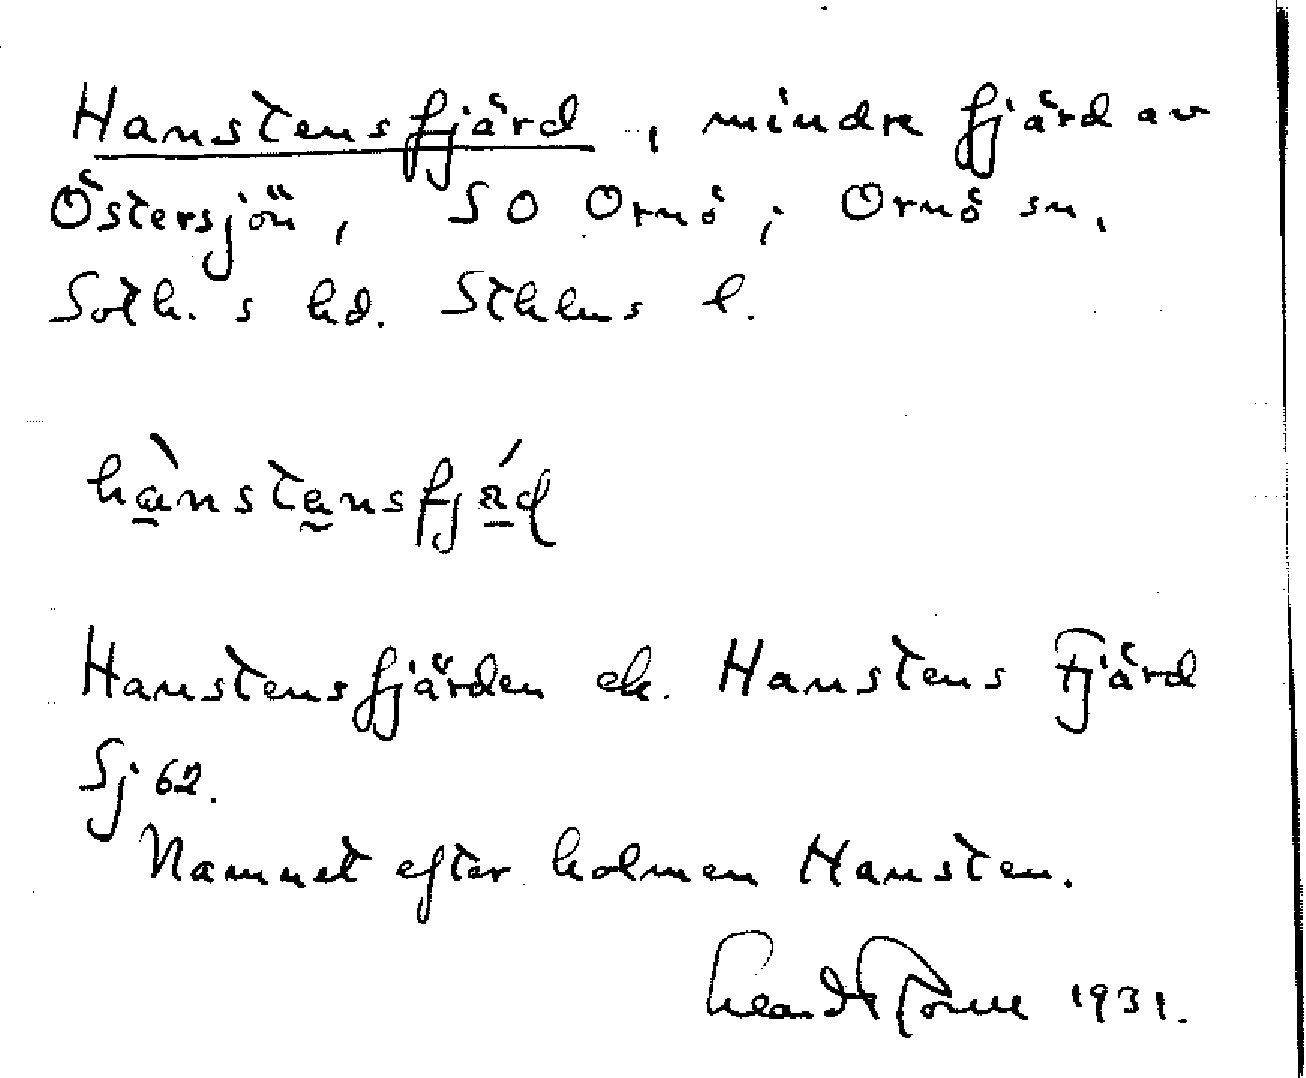 Hanstensfjärd, mindre fjärd av
Östersjön, SO Ornö; Ornö sn,
Soth.s hd. Sthlms l.
hànstensfjä́d
Hanstensfjärden ek. Hanstens Fjärd
Sj 62.
Namnet efter holmen Hansten.
1931.